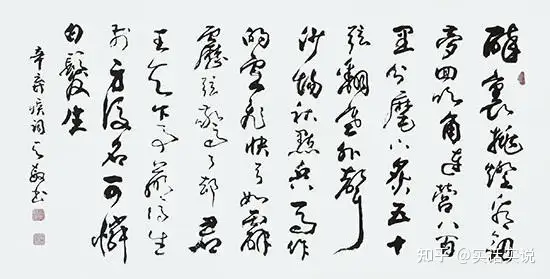 醉裏挑燈看劍
夢回吹角連營八百
里分麾下炙五十
弦翻塞外聲
沙場秋點兵馬作
的盧飛快弓如霹
靂弦驚了卻君
王天下事贏得生
前身後名可憐
白髮生
辛棄疾詞 书
知乎 @实话实说